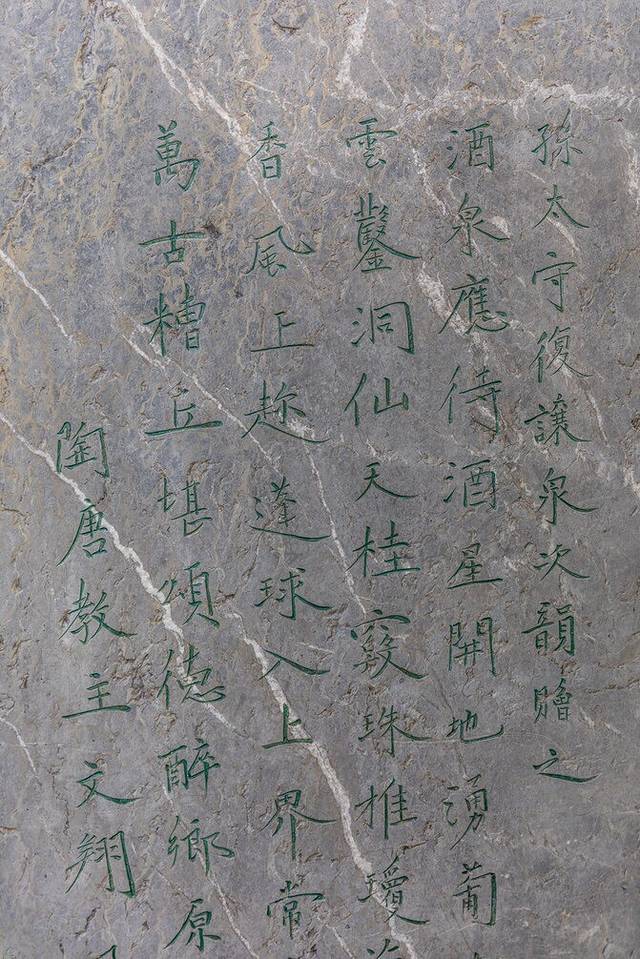 孫太守復讓泉次韻贈之
酒泉應待酒星開地湧葡
雲鑿洞仙天桂窽珠推瓊
香風上趂蓬球入上界常
萬古糟丘堪頌德醉鄉原
陶唐教主文翔